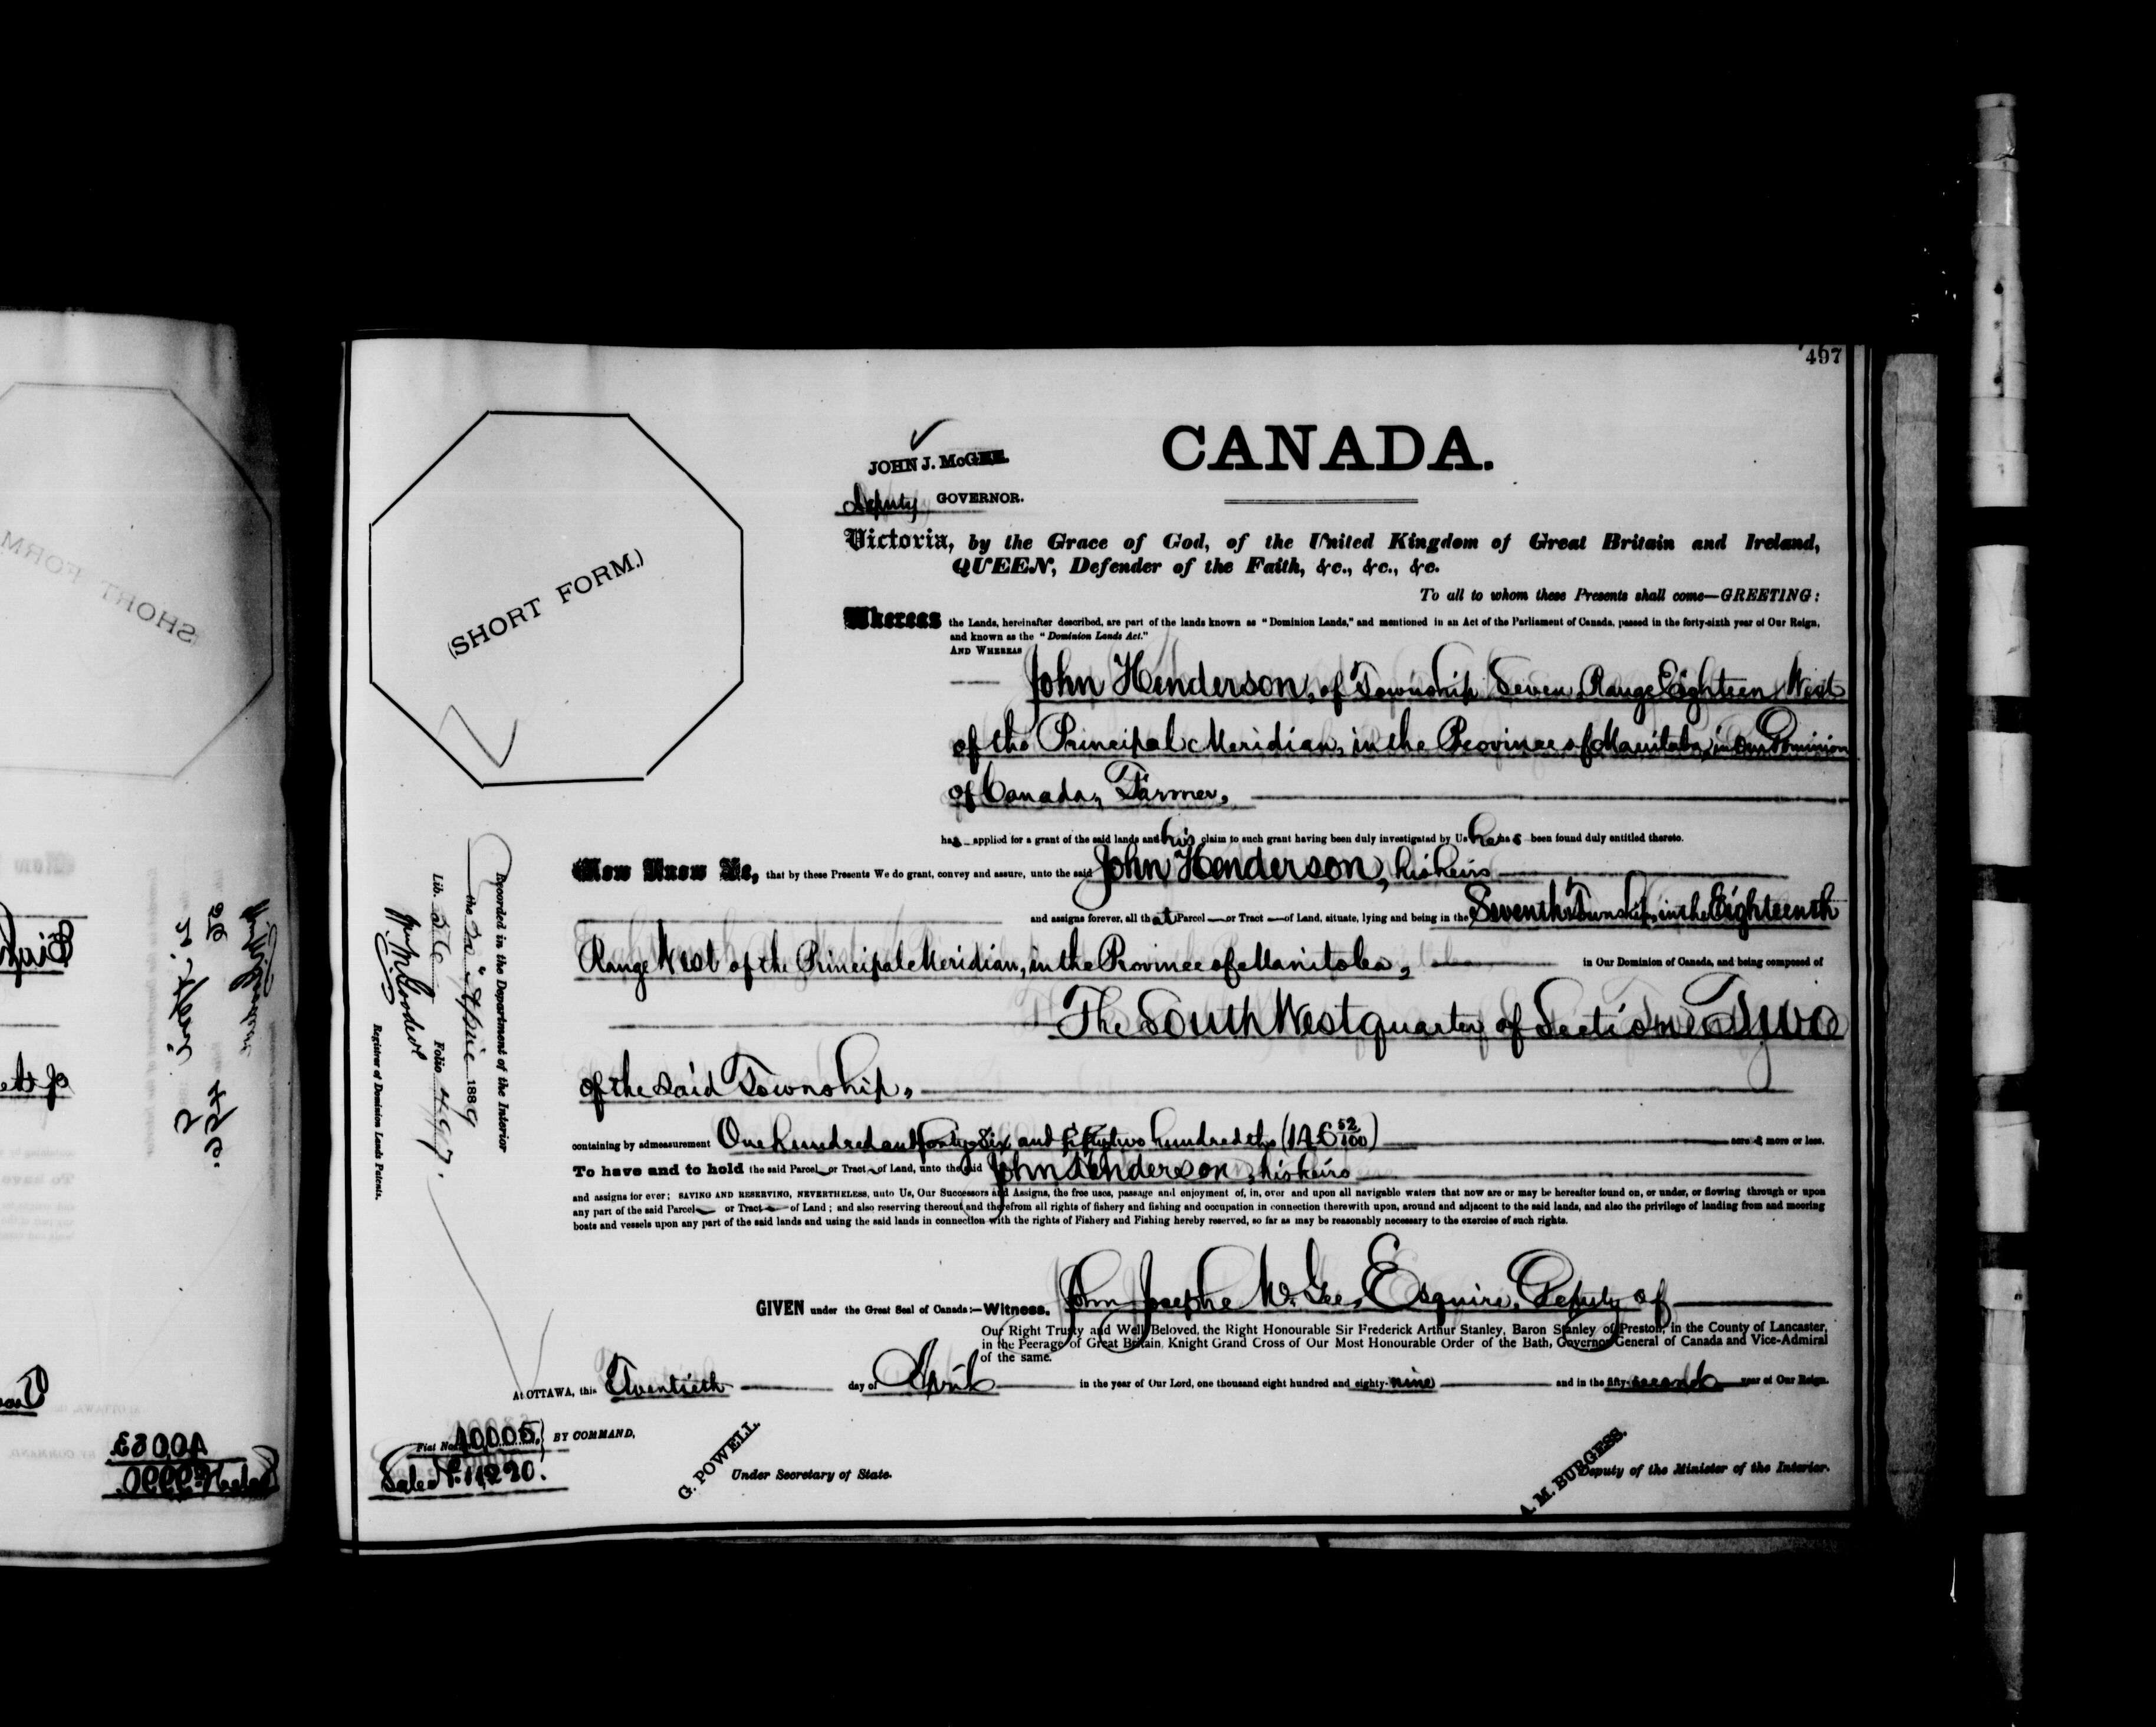 497
CANADA.
JOHN J. McGEE.
Deputy GOVERNOR.
(SHORT FORM.)
Victoria, by the Grace of God, of the United Kingdom of Great Britain and Ireland,
QUEEN, Defender of the Faith, &c., &c., &c.
To all to whom these Presents shall come—GREETING:
Whereas the Lands, hereinafter described, are part of the lands known as "Dominion Lands," and mentioned in an Act of the Parliament of Canada, passed in the forty-sixth year of Our Reign,
and known as the "Dominion Lands Act."
AND WHEREAS
John Henderson, of Township Seven, Range Eighteen West
of the Principal Meridian, in the Province of Manitoba, in Our Dominion
of Canada, Farmer,
has applied for a grant of the said lands and his claim to such grant having been duly investigated by Us he has been found duly entitled thereto.
Now Know Ye, that by these Presents We do grant, convey and assure, unto the said John Henderson, his heirs
and assigns forever, all that Parcel or Tract of Land, situate, lying and being in the Seventh Township, in the Eighteenth
Range West of the Principal Meridian, in the Province of Manitoba, in Our Dominion of Canada, and being composed of
The South West quarter of Section Two
of the said Township,
containing by admeasurement One hundred and forty-six and fifty two hundredths (146 52/100) acres more or less.
To have and to hold the said Parcel or Tract of Land, unto the said John Henderson, his heirs
and assigns for ever; SAVING AND RESERVING, NEVERTHELESS, unto Us, Our Successors and Assigns, the free uses, passage and enjoyment of, in, over and upon all navigable waters that now are or may be hereafter found on, or under, or flowing through or upon
any part of the said Parcel or Tract of Land; and also reserving thereout and therefrom all rights of fishery and fishing and occupation in connection therewith upon, around and adjacent to the said lands, and also the privilege of landing from and mooring
boats and vessels upon any part of the said lands and using the said lands in connection with the rights of Fishery and Fishing hereby reserved, so far as may be reasonably necessary to the exercise of such rights.
GIVEN under the Great Seal of Canada:—Witness, John Joseph McGee, Esquire, Deputy of
Our Right Trusty and Well Beloved, the Right Honourable Sir Frederick Arthur Stanley, Baron Stanley of Preston, in the County of Lancaster,
in the Peerage of Great Britain, Knight Grand Cross of Our Most Honourable Order of the Bath, Governor General of Canada and Vice-Admiral
of the same.
At OTTAWA, this Twentieth day of April in the year of Our Lord, one thousand eight hundred and eighty-nine and in the fifty-second year of Our Reign.
Fiat No. 40005 BY COMMAND,
Sale No. 11290.
G. POWELL.
Under Secretary of State.
A. M. BURGESS.
Deputy of the Minister of the Interior.
Recorded in the Department of the Interior
the April 1889
Lib. Folio 497.
Registrar of Dominion Lands Patents.